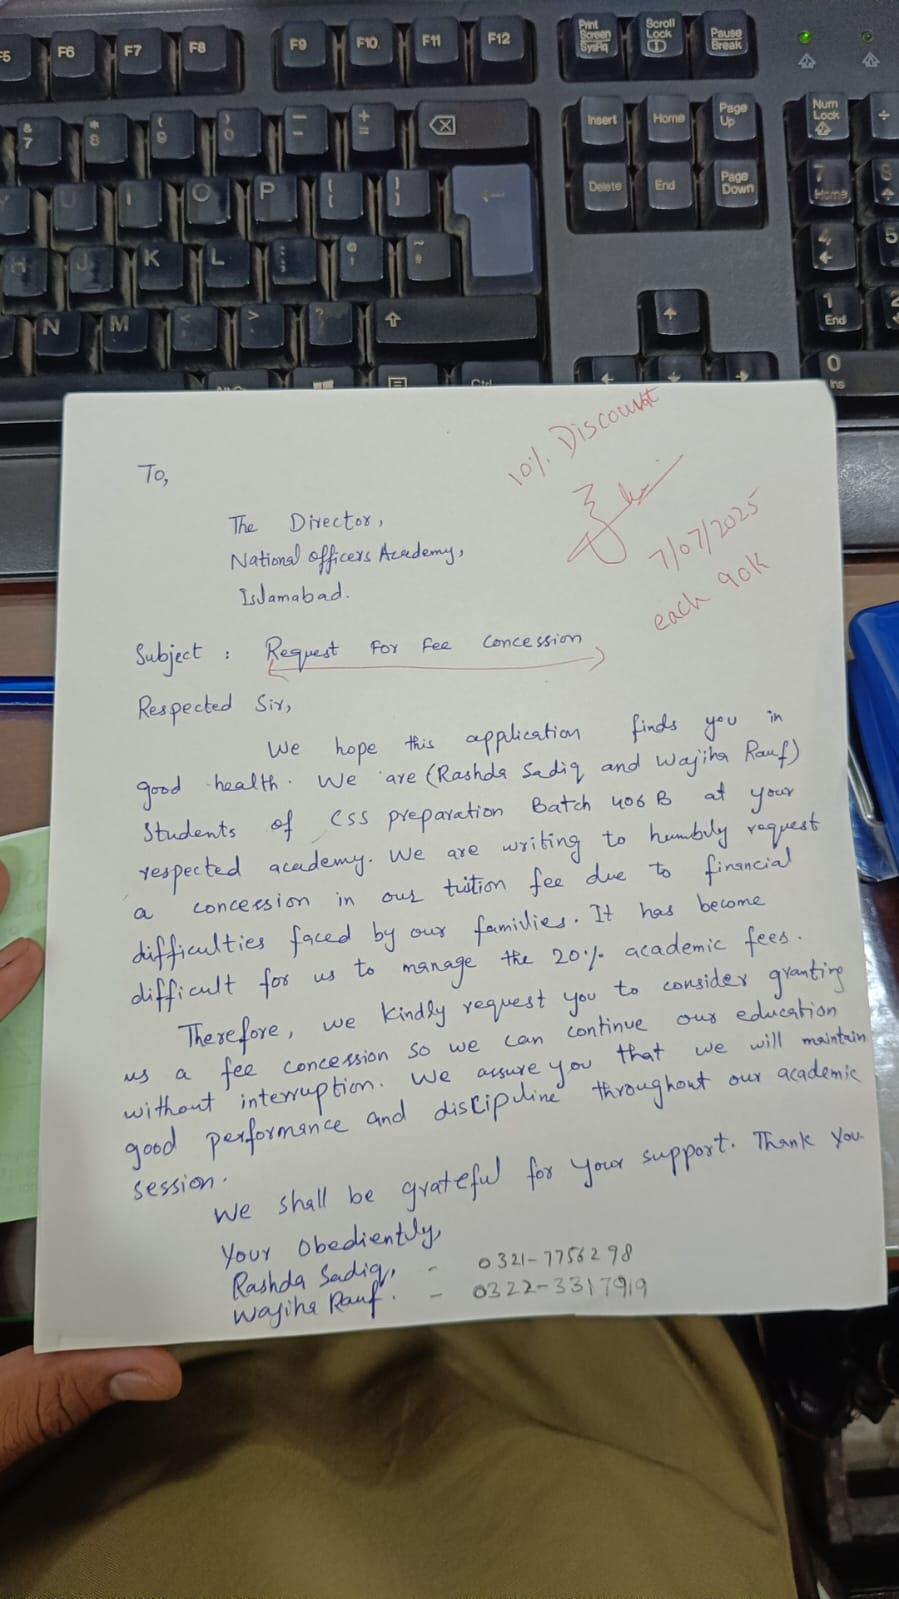 F5 F6 F7 F8 F9 F10 F11 F12 Print Screen SysRq Scroll Lock Pause Break
& 7 * 8 ( 9 ) 0 + = Insert Home Page Up Num Lock
O P Delete End Page Down 7 Home
H J K L 4 5
N M < > ? 1 End
0 Ins
Ctrl
10% Discount
To,
The Director,
National officers Academy,
Islamabad.
7/07/2025
each 90k
Subject : Request For Fee Concession
Respected Sir,
We hope this application finds you in
good health. We are (Rashda Sadiq and Wajiha Rauf)
Students of CSS preparation Batch 406 B at your
respected academy. We are writing to humbly request
a concession in our tuition fee due to financial
difficulties faced by our families. It has become
difficult for us to manage the 20% academic fees.
Therefore, we kindly request you to consider granting
us a fee concession so we can continue our education
without interruption. We assure you that we will maintain
good performance and discipline throughout our academic
session.
We shall be grateful for your support. Thank you.
Your Obediently,
Rashda Sadiq, - 0321-7756298
Wajiha Rauf. - 0322-3317919